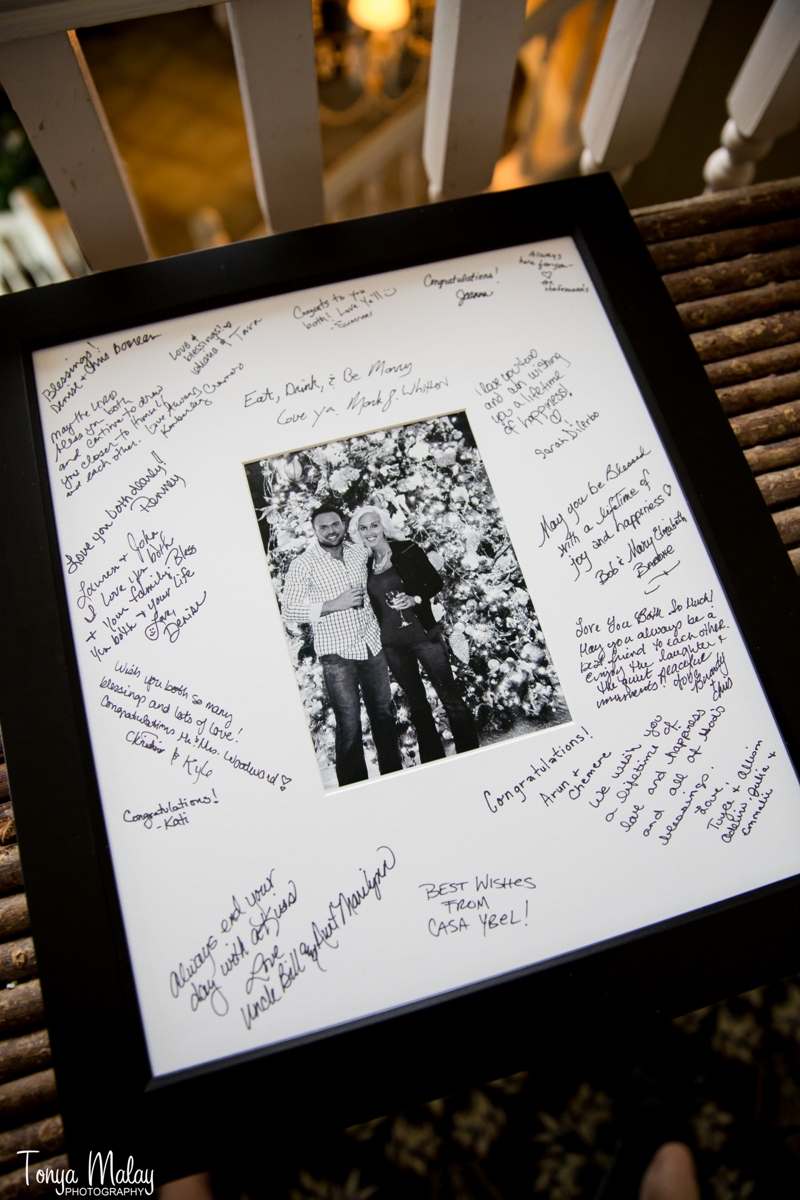 Blessings!
Denise + Chris
Love &
blessings!
& Tara
Congrats to you
both! Love Ya'll
-Summer
Congratulations!
Joanne
Always
here for you
May the Lord
bless you both
and continue to draw
you closer to him &
and each other. Love Always
Kimberley
Eat, Drink, & Be Marry
Love Ya, Mark J. Whitten
I love you too
and am wishing
you a lifetime
of happiness!
Sarah
Love you both dearly!
Penney
Lauren & John
I love you both
+ your family. Bless
you both + your life
Love,
Denise
May you be Blessed
with a lifetime of
joy and happiness
Bob & Mary Elizabeth
Love You Both So Much!
May you always be a
best friend to each other.
Enjoy the laughter &
the quiet peaceful
moments!
Brandy
Wish you both so many
blessings and lots of love!
Congratulations Mr. & Mrs. Woodward!
& Kyle
Congratulations!
-Kati
Congratulations!
Arun &
Chemere
We wish you
a lifetime of
love and happiness
and all of God's
blessings.
Love,
Allison
Julia +
Always end your
day with a Kiss
Love
Uncle Bill & Aunt Marilynn
BEST WISHES
FROM
CASA YBEL!
Tonya Malay
PHOTOGRAPHY